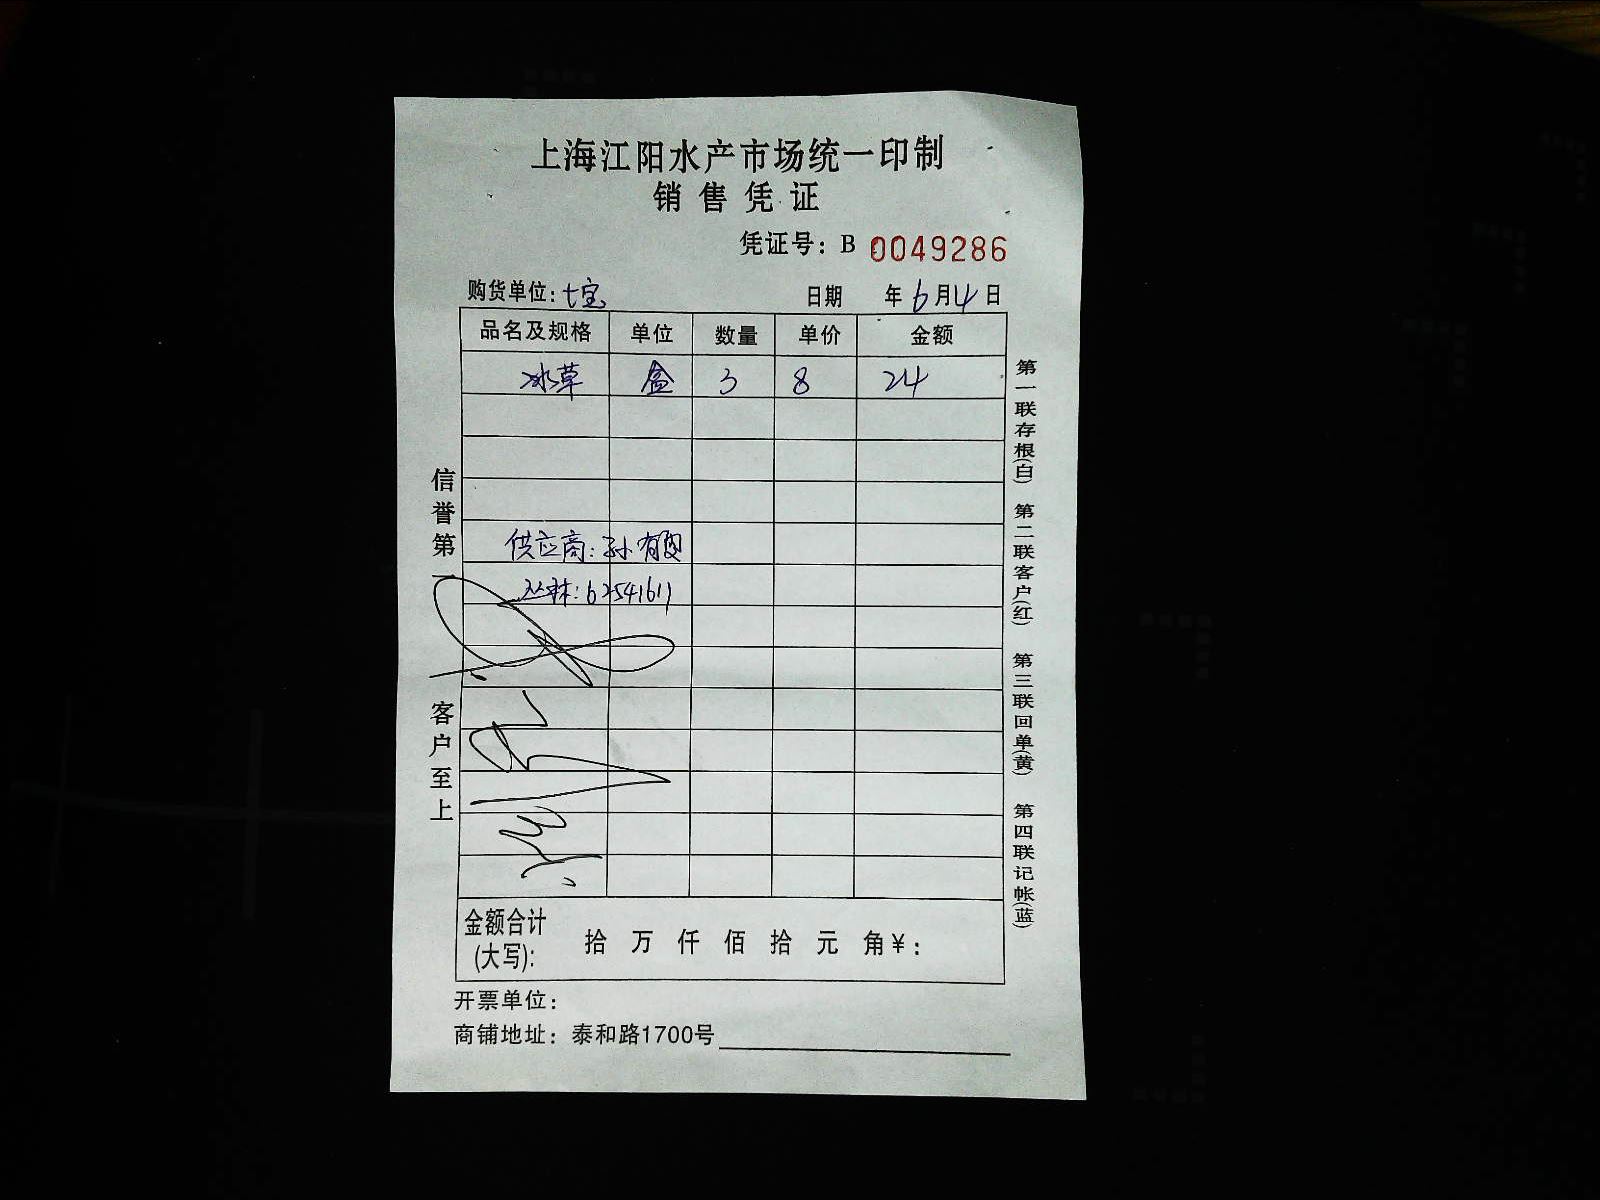 上海江阳水产市场统一印制
销售凭证
凭证号：B 0049286
购货单位：七宝 日期 年6月4日
品名及规格 单位 数量 单价 金额
冰草 盒 3 8 24
供应商：孙有
62541611
金额合计(大写)： 拾 万 仟 佰 拾 元 角¥：
开票单位：
商铺地址：泰和路1700号
信誉第一 客户至上
第一联存根(白) 第二联客户(红) 第三联回单(黄) 第四联记帐(蓝)